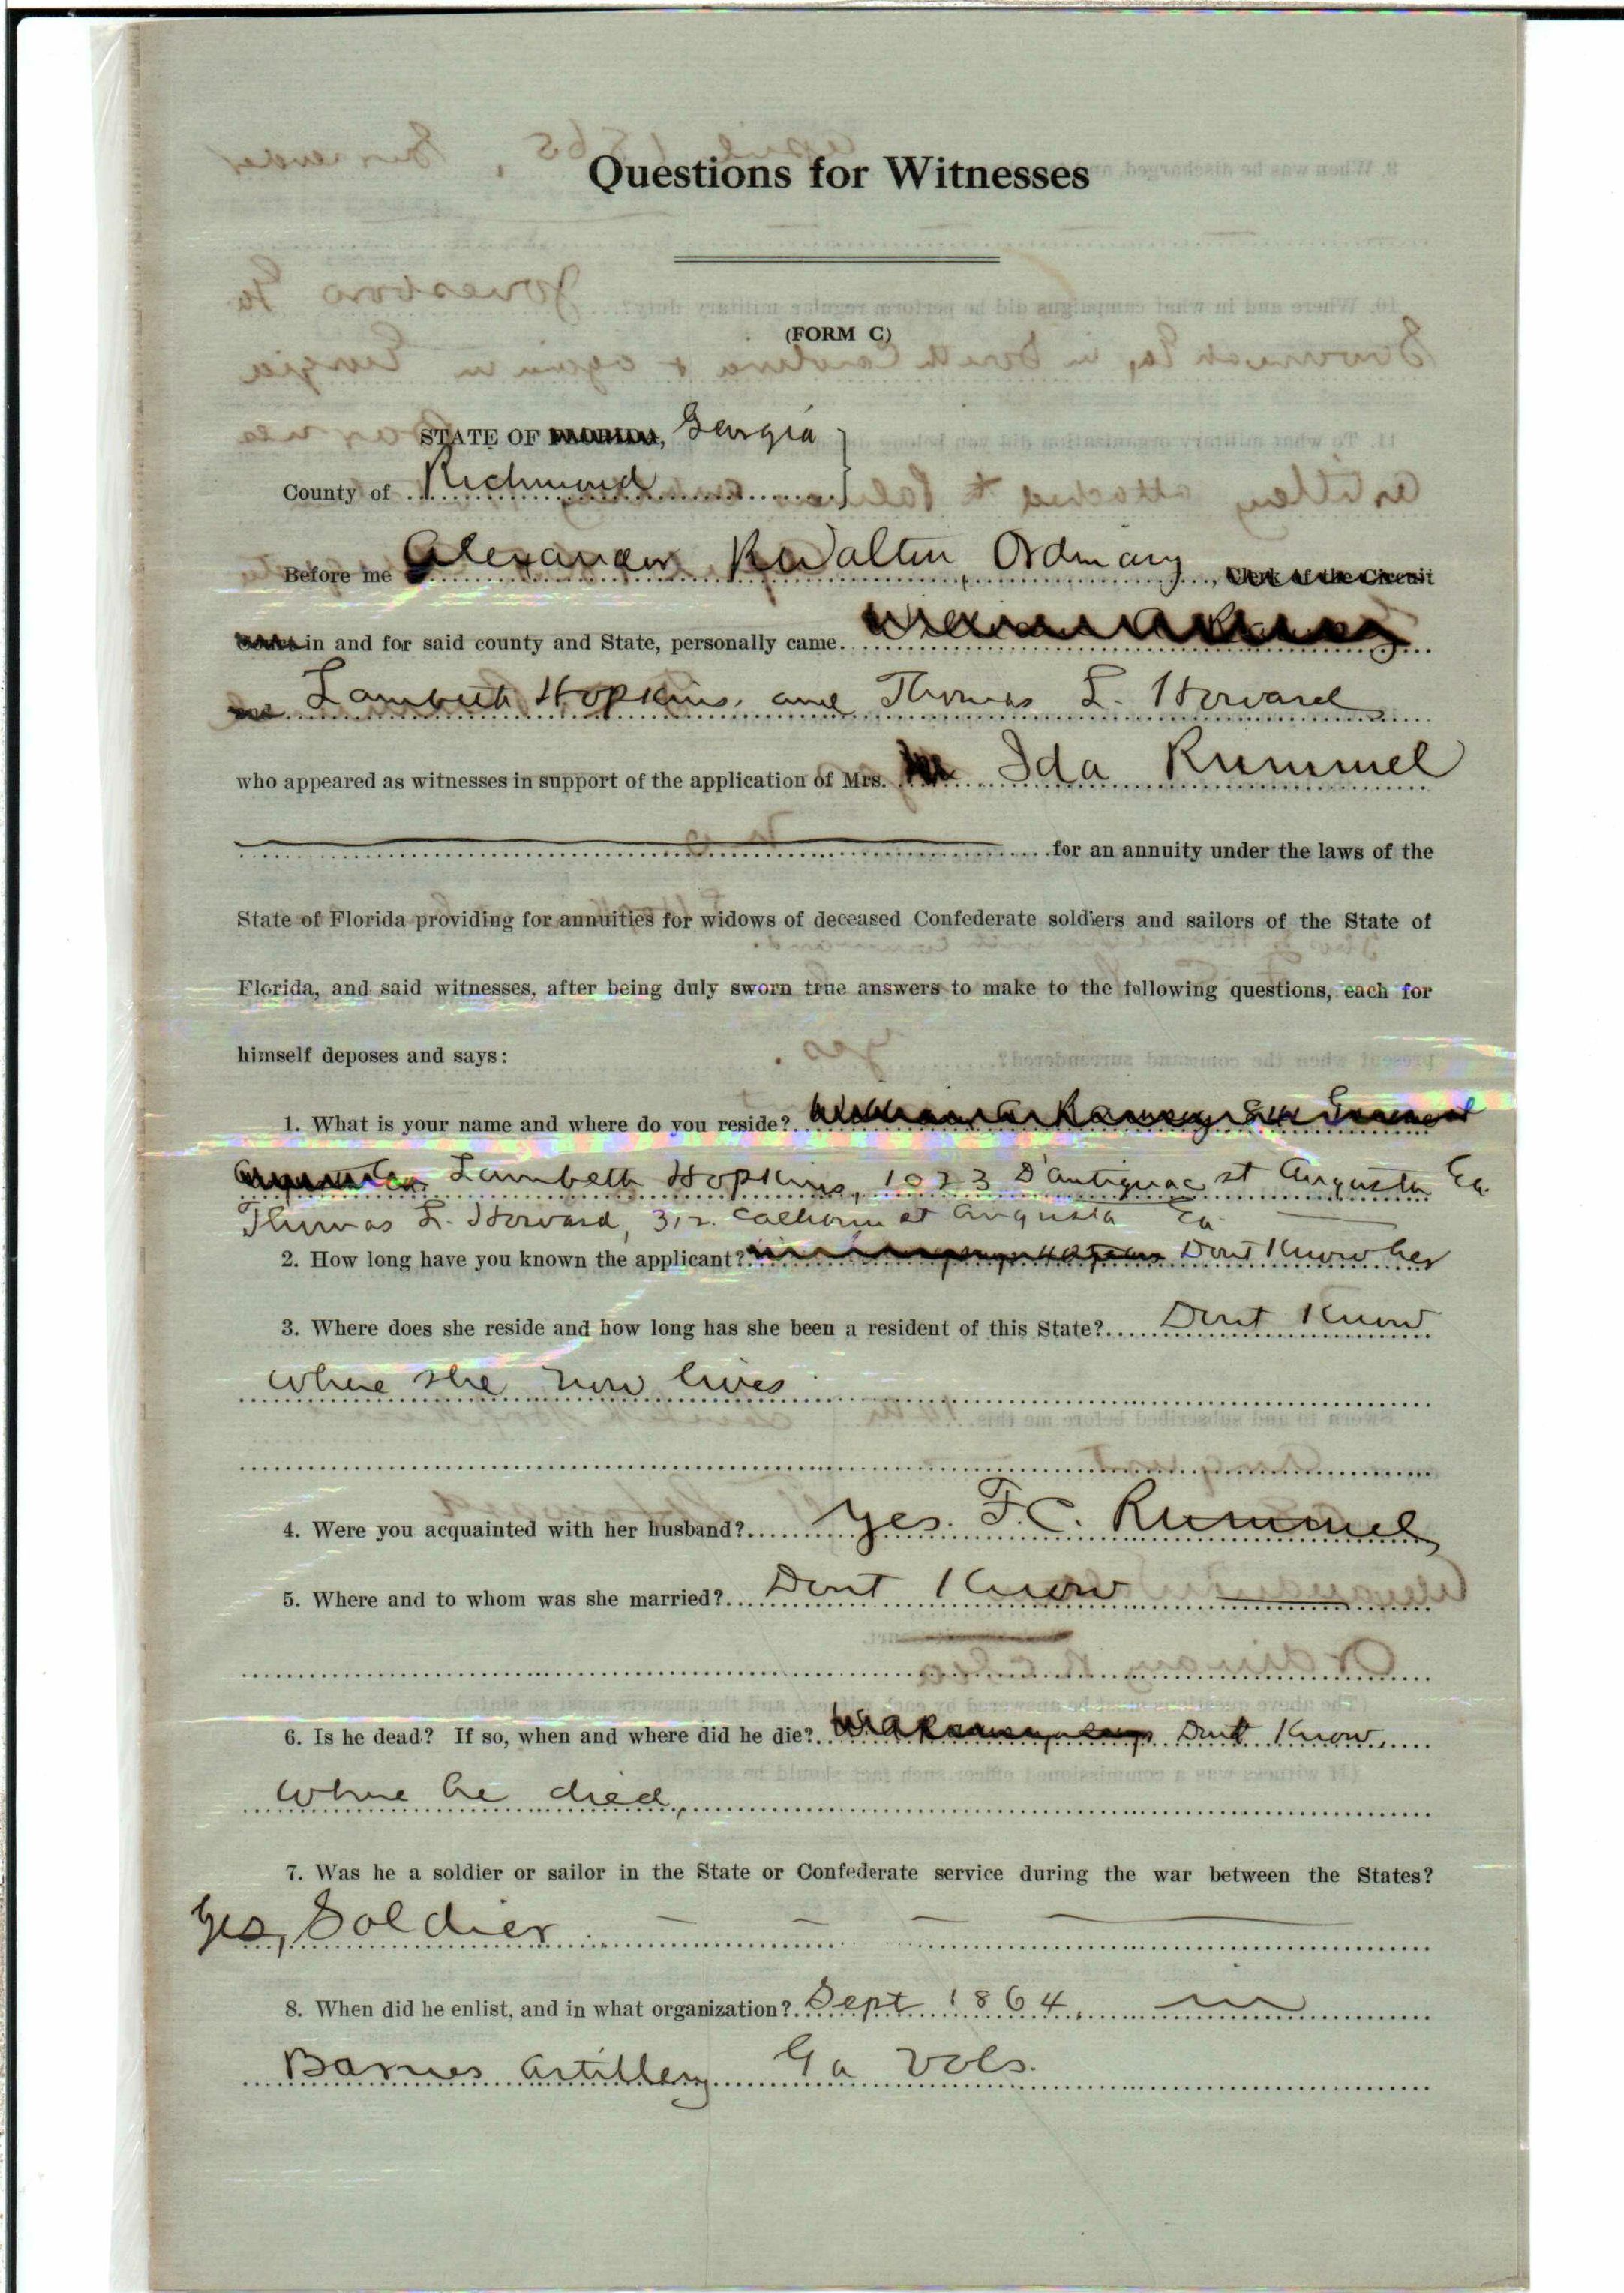 Questions for Witnesses
(FORM C)
STATE OF FLORIDA, Georgia
County of Richmond
Before me Alexander R Walton, Ordinary, Clerk of the Circuit
Court in and for said county and State, personally came
Lambeth Hopkins, and Thomas L. Howard
who appeared as witnesses in support of the application of Mrs. Ida Rummel
for an annuity under the laws of the
State of Florida providing for annuities for widows of deceased Confederate soldiers and sailors of the State of
Florida, and said witnesses, after being duly sworn true answers to make to the following questions, each for
himself deposes and says:
1. What is your name and where do you reside?
Lambeth Hopkins, 1023 D'antignac st Augusta Ga.
Thomas L. Howard, 312 Calhoun st Augusta Ga
2. How long have you known the applicant? Dont Know her
3. Where does she reside and how long has she been a resident of this State? Dont Know
where she now lives
4. Were you acquainted with her husband? Yes. F. C. Rummel
5. Where and to whom was she married? Dont Know
6. Is he dead? If so, when and where did he die? Dont Know
where he died,
7. Was he a soldier or sailor in the State or Confederate service during the war between the States?
Yes, Soldier
8. When did he enlist, and in what organization? Sept 1864, in
Barnes Artillery Ga Vols.